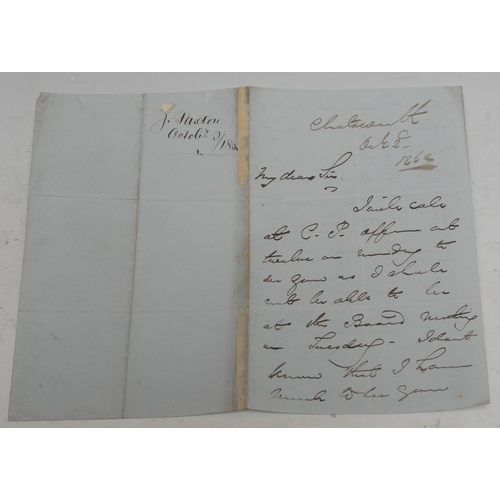 J. Paxton
Octob. 9/186
Chatsworth
Oct 8
1862
My dear Sir.
I will call
at C. P. office at
twelve on monday to
see you as I shall
not be able to be
at the Board meeting
on Tuesday - I dont
know that I have
much to see you